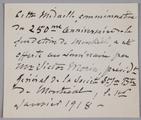 Cette Médaille, commémorative
du 250me anniversaire de la
fondation de Montréal, a été
offerte
par
Mr Victor Morin, président
général de la Société St-J.-Bte
de Montréal, le 1er
janvier 1918 -